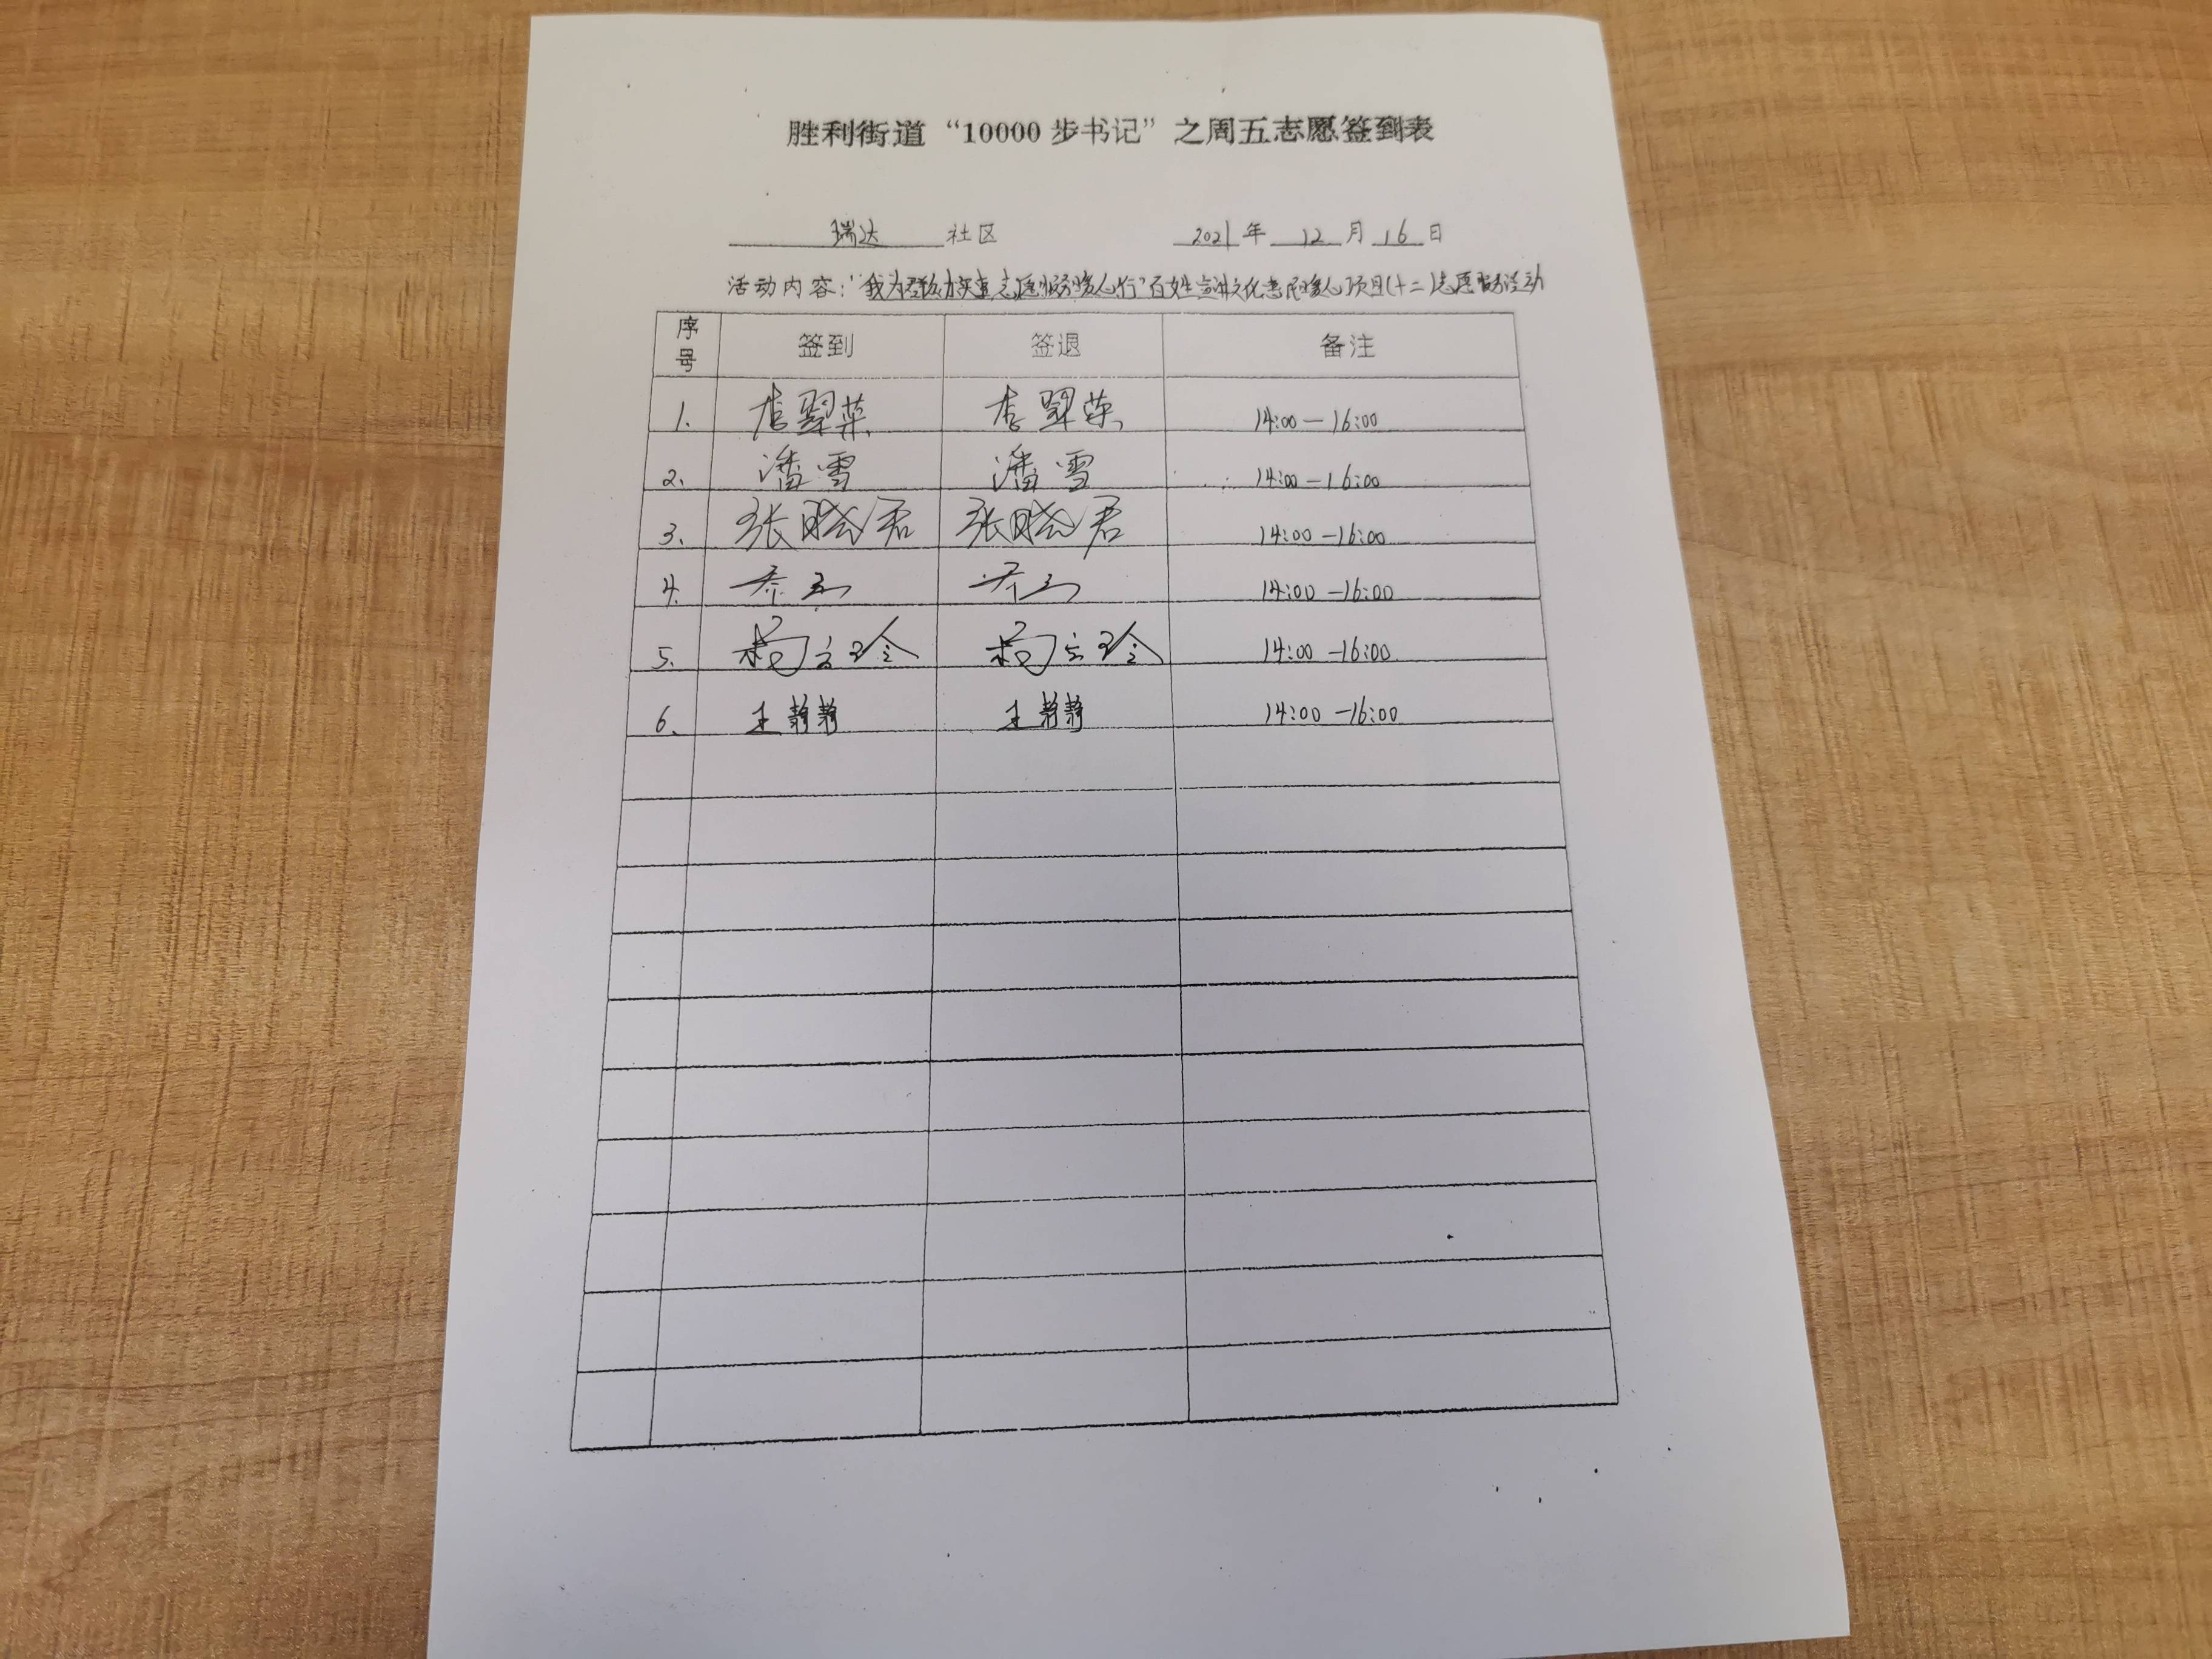 胜利街道“10000步书记”之周五志愿签到表
瑞达 社区 2021年 12月 16日
活动内容：“我为群众办实事 志愿服务暖人心行”百姓宣讲文化惠民暖心项目(十二)志愿服务活动
序号 签到 签退 备注
1. 李翠荣 李翠荣 14:00—16:00
2. 潘雪 潘雪 14:00—16:00
3. 张晓君 张晓君 14:00—16:00
4. 14:00—16:00
5. 14:00—16:00
6. 王静静 王静静 14:00—16:00